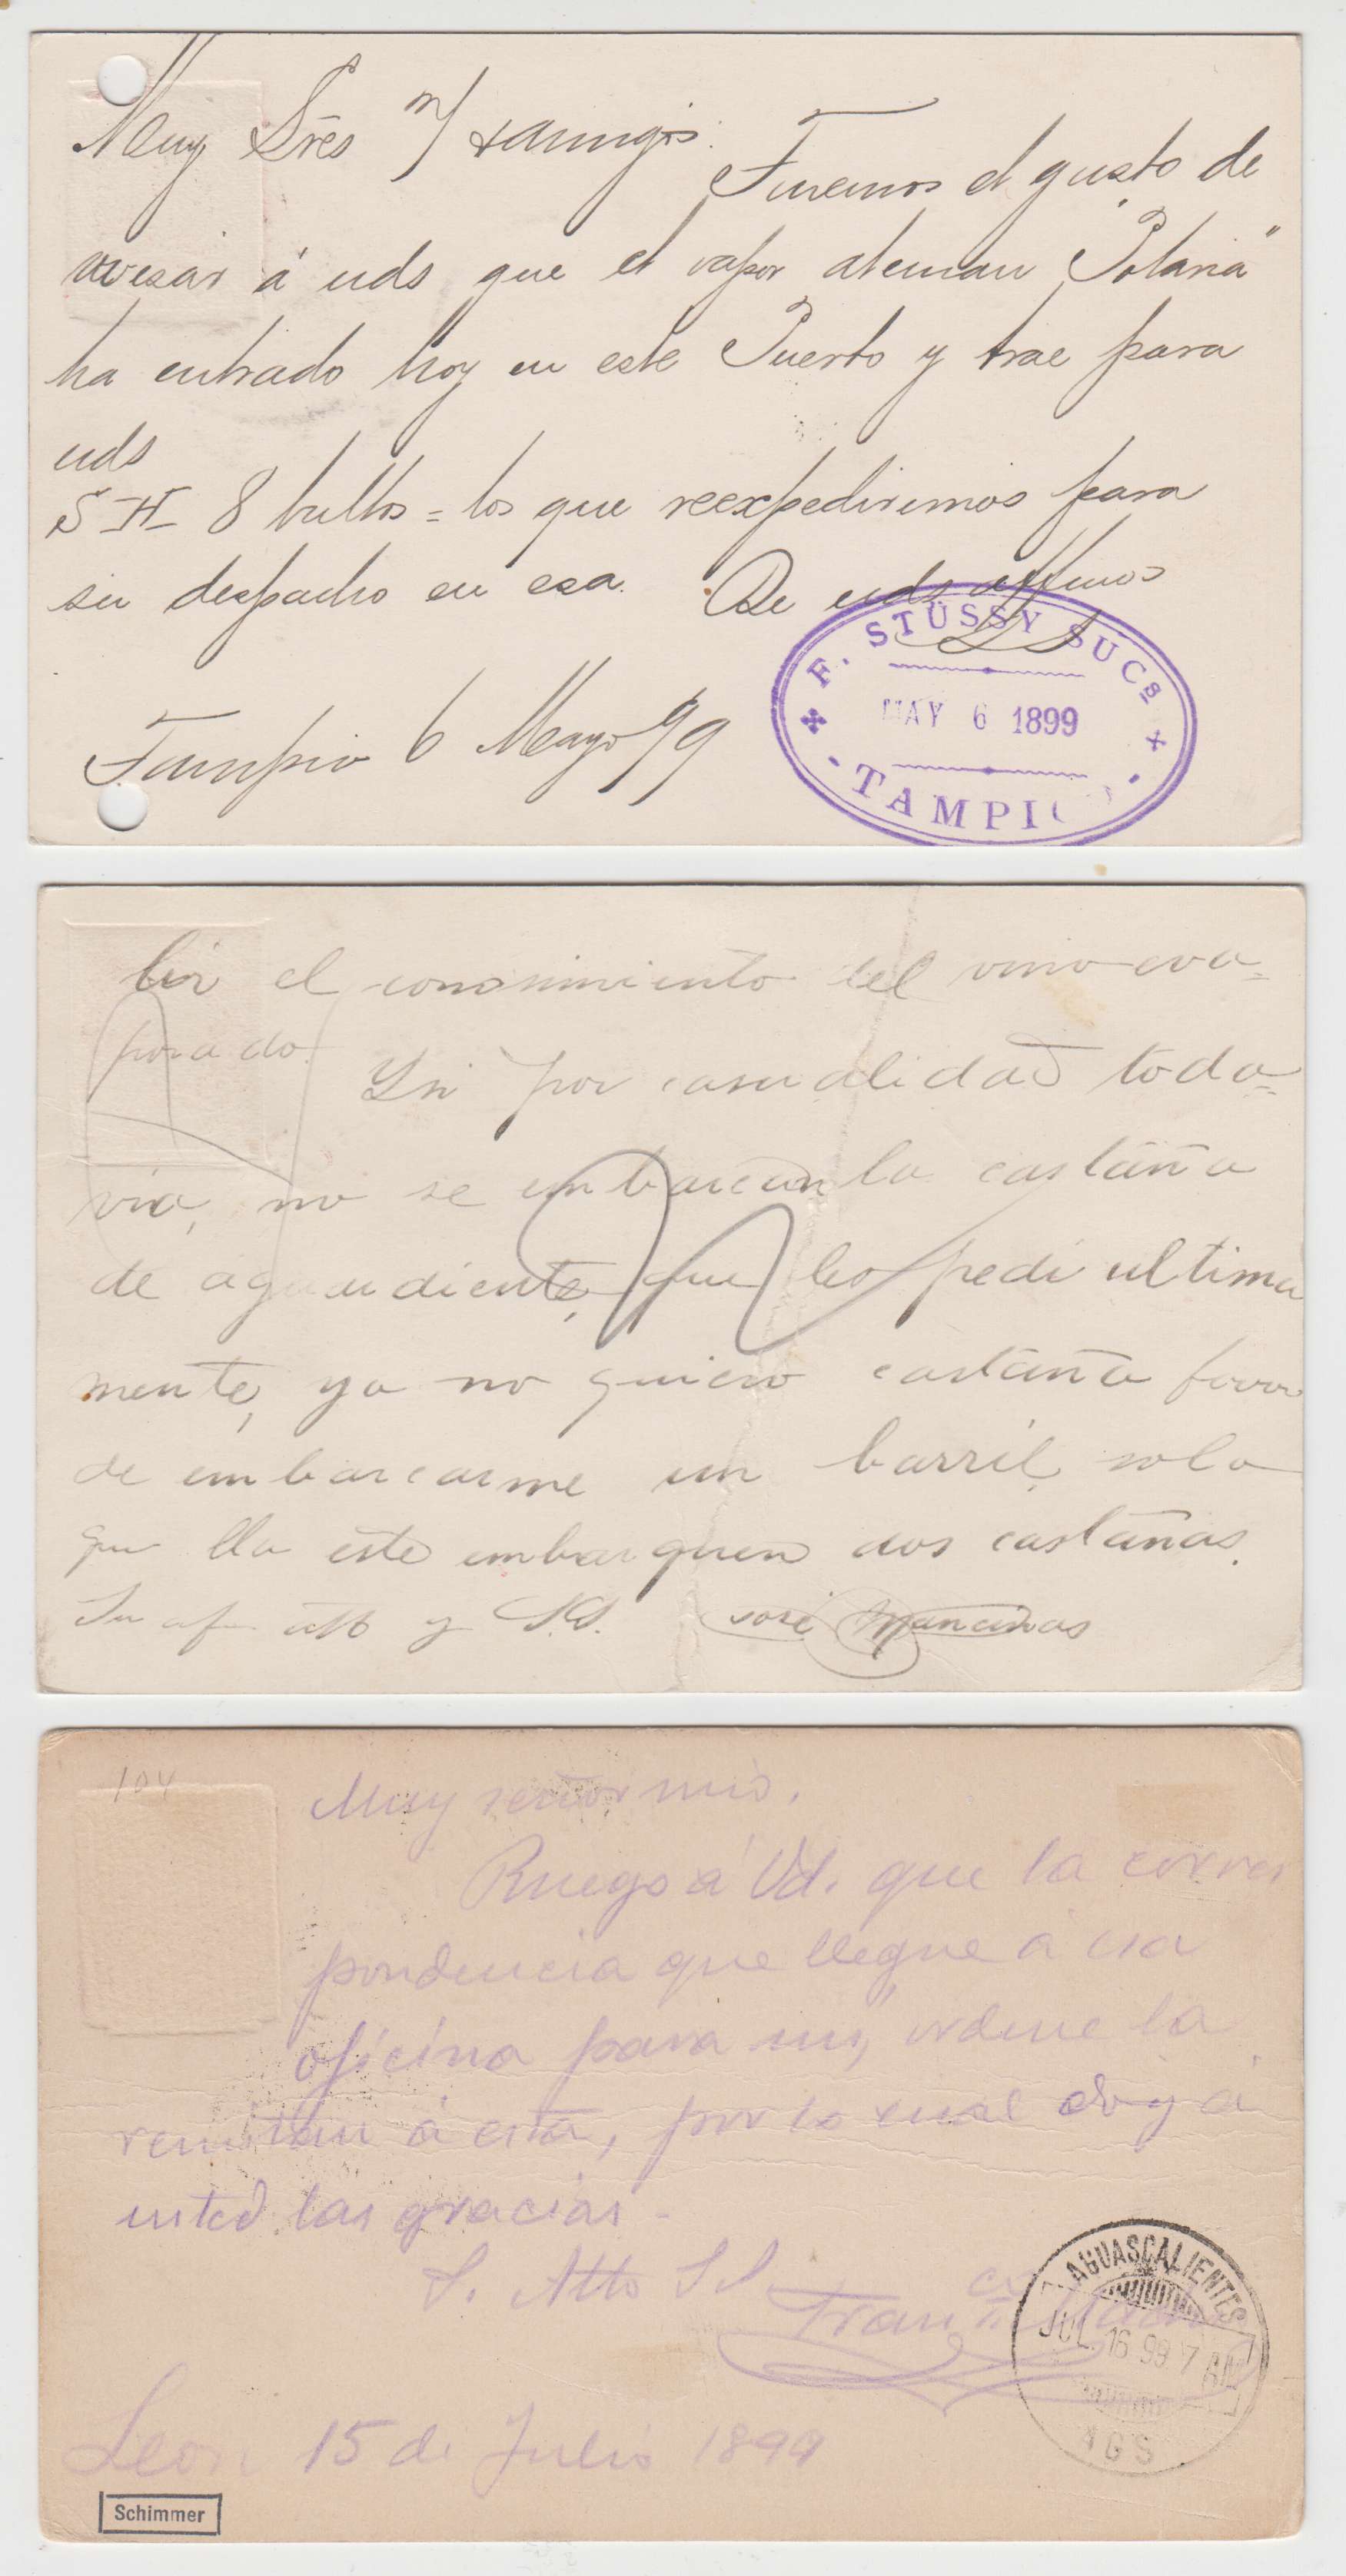 Muy Sres n/ & amigos:
Tenemos el gusto de
avesar á uds que el vapor aleman "Polaria"
ha entrado hoy en este Puerto y trae para
uds
S H 8 bultos = los que reexpediremos para
su despacho en esa. De uds affmos
F. STÜSSY SUCs
MAY 6 1899
TAMPICO
Tampico 6 Mayo 99
bir el conosimiento del vino eva=
porado.
Y si por casualidad toda=
via, no se embarcan la castaña
de aguardiente, que les pedi ultima
mente, ya no quiero castaña favor
de embarcarme un barril, solo
que lla este embarquen dos castañas.
Su af atto y S.S. José Mancinas
104
Muy señor mio.
Ruego á Ud. que la corres
pondencia que llegue á esa
oficina para mi, ordene la
remitan á esta, por lo cual doy á
usted las gracias.
S. Atto S S
Fran co
AGUASCALIENTES
JUL 16 99 7 AM
AGS
Leon 15 de Julio 1899
Schimmer